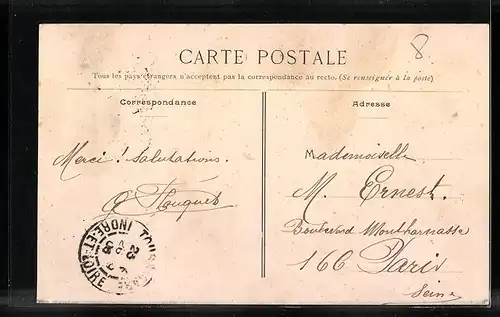 8
CARTE POSTALE
Tous les pays étrangers n'acceptent pas la correspondance au recto. (Se renseigner à la poste)
Correspondance
Adresse
Merci! Salutations.
Mademoiselle
M. Ernest.
Boulevard Montparnasse
166 Paris
Seine
INDRE-ET-LOIRE